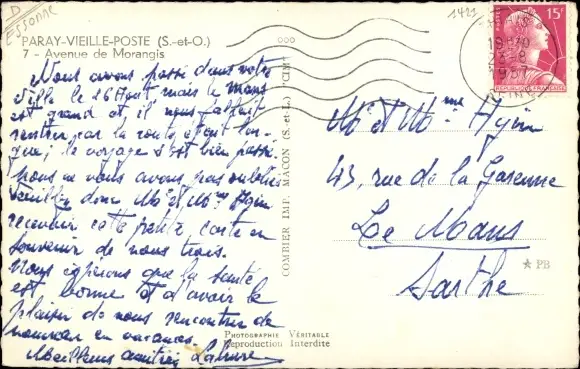 D
ESSONNE
PARAY-VIEILLE-POSTE (S.-et-O.)
7 - Avenue de Morangis
Nous avons passé dans votre
ville le 26 Août mais le Mans
est grand et il nous fallait
rentrer par la route était lon-
gue; le voyage s'est bien passé.
nous ne vous avons pas oubliés
veuillez donc Mr et Mme
recevoir cette petite carte en
souvenir de nous trois.
Nous espérons que la santé
est bonne et d'avoir le
plaisir de nous rencontrer de
nouveau en vacances.
Meilleures amitiés
COMBIER IMP. MACON (S.-et-L.) "CIM"
PHOTOGRAPHIE VÉRITABLE
Reproduction Interdite
1421
15F
POSTES
REPUBLIQUE FRANÇAISE
19H30
Mr et Mme
43, rue de la Garenne
Le Mans
Sarthe
★ PB